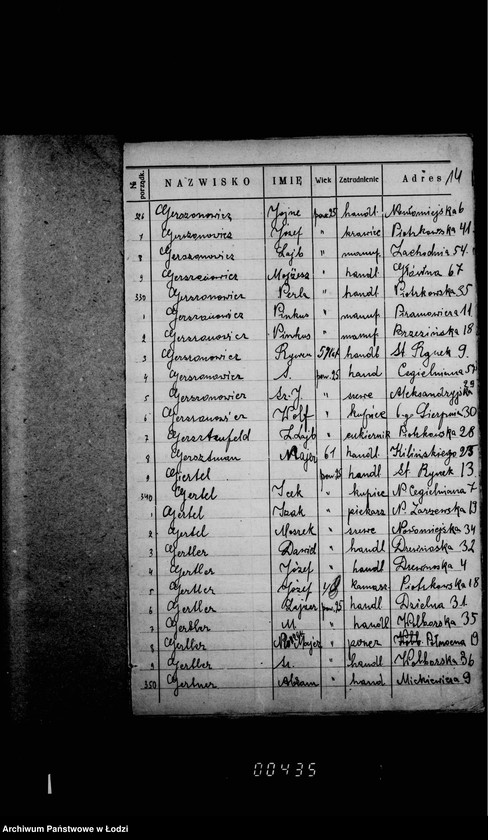 № porządk. NAZWISKO IMIĘ Wiek Zatrudnienie Adres 14
326 Gerszonowicz Jojne pow 25 handl Nowomiejska 6
7 Gerszonowicz Józef " krawiec Piotrkowska 41
8 Gerszonowicz Lajb " manuf Zachodnia 54
9 Gerszonowicz Mojżesz " handl Główna 67
330 Gerszonowicz Perla " handl Piotrkowska 35
1 Gerszonowicz Pinkus " manuf Pramowicza 11
2 Gerszonowicz Pinkus " manuf Brzezińska 18
3 Gerszonowicz Rywen handl St. Rynek 9.
4 Gerszonowicz S. pow. 25 hand Cegielniana
5 Gerszonowicz Sz. J. " szewc Aleksandryjska 29
6 Gerszonowicz Wolf " kupiec 6-go Sierpnia 30
7 Lajb " cukiernik Piotrkowska 28
8 Gersztman Majer 61 handl Kilińskiego
9 Giertel pow 25 handl St. Rynek 13
340 Gertel Icek " kupiec N. Cegielniana 7
1 Gertel Izak " piekarz N. Zarzewska 19
2 Gertel Moszek " szewc Nowomiejska 34
3 Gertler Dawid " handl Drewnowska 32
4 Gertler Józef " handl Drewnowska 4
5 Gertler Józef kamasz Piotrkowska 18
6 Gertler pow. 25 handl Dzielna 31
7 Gertler M. " handl Wolborska 35
8 Gertler Majer " 19
9 Gertler " handl Wolborska 36
350 Gertner Abram " hand Mickiewicza 9
00435
Archiwum Państwowe w Łodzi